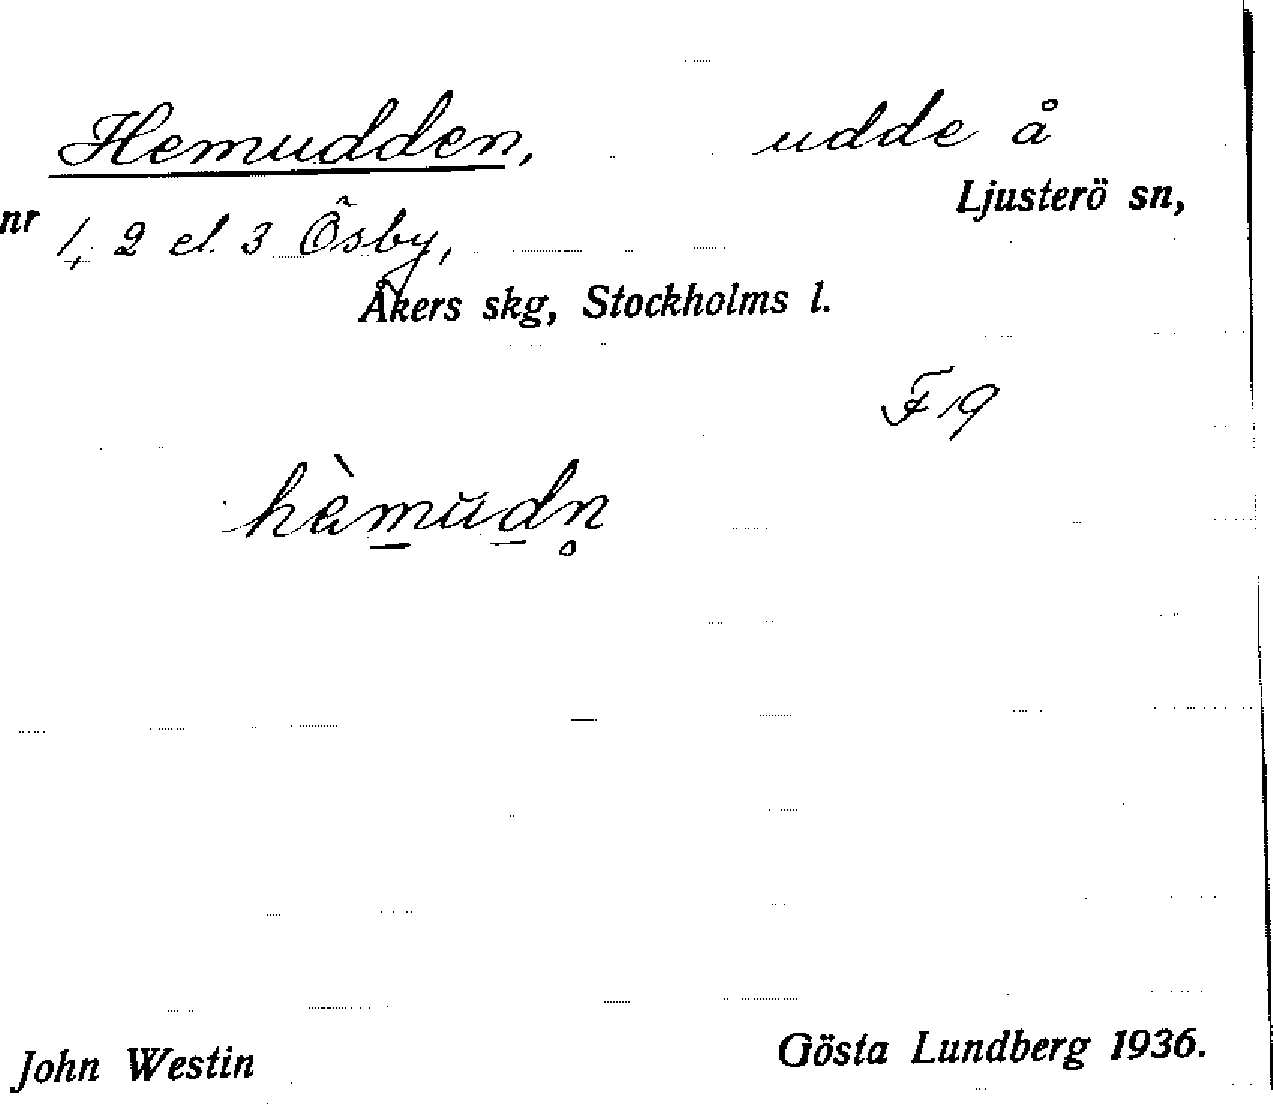 Hemudden, udde å
Ljusterö sn,
nr 1, 2 el. 3 Ösby,
Åkers skg, Stockholms l.
F 19
hèmŭdn̥
John Westin Gösta Lundberg 1936.